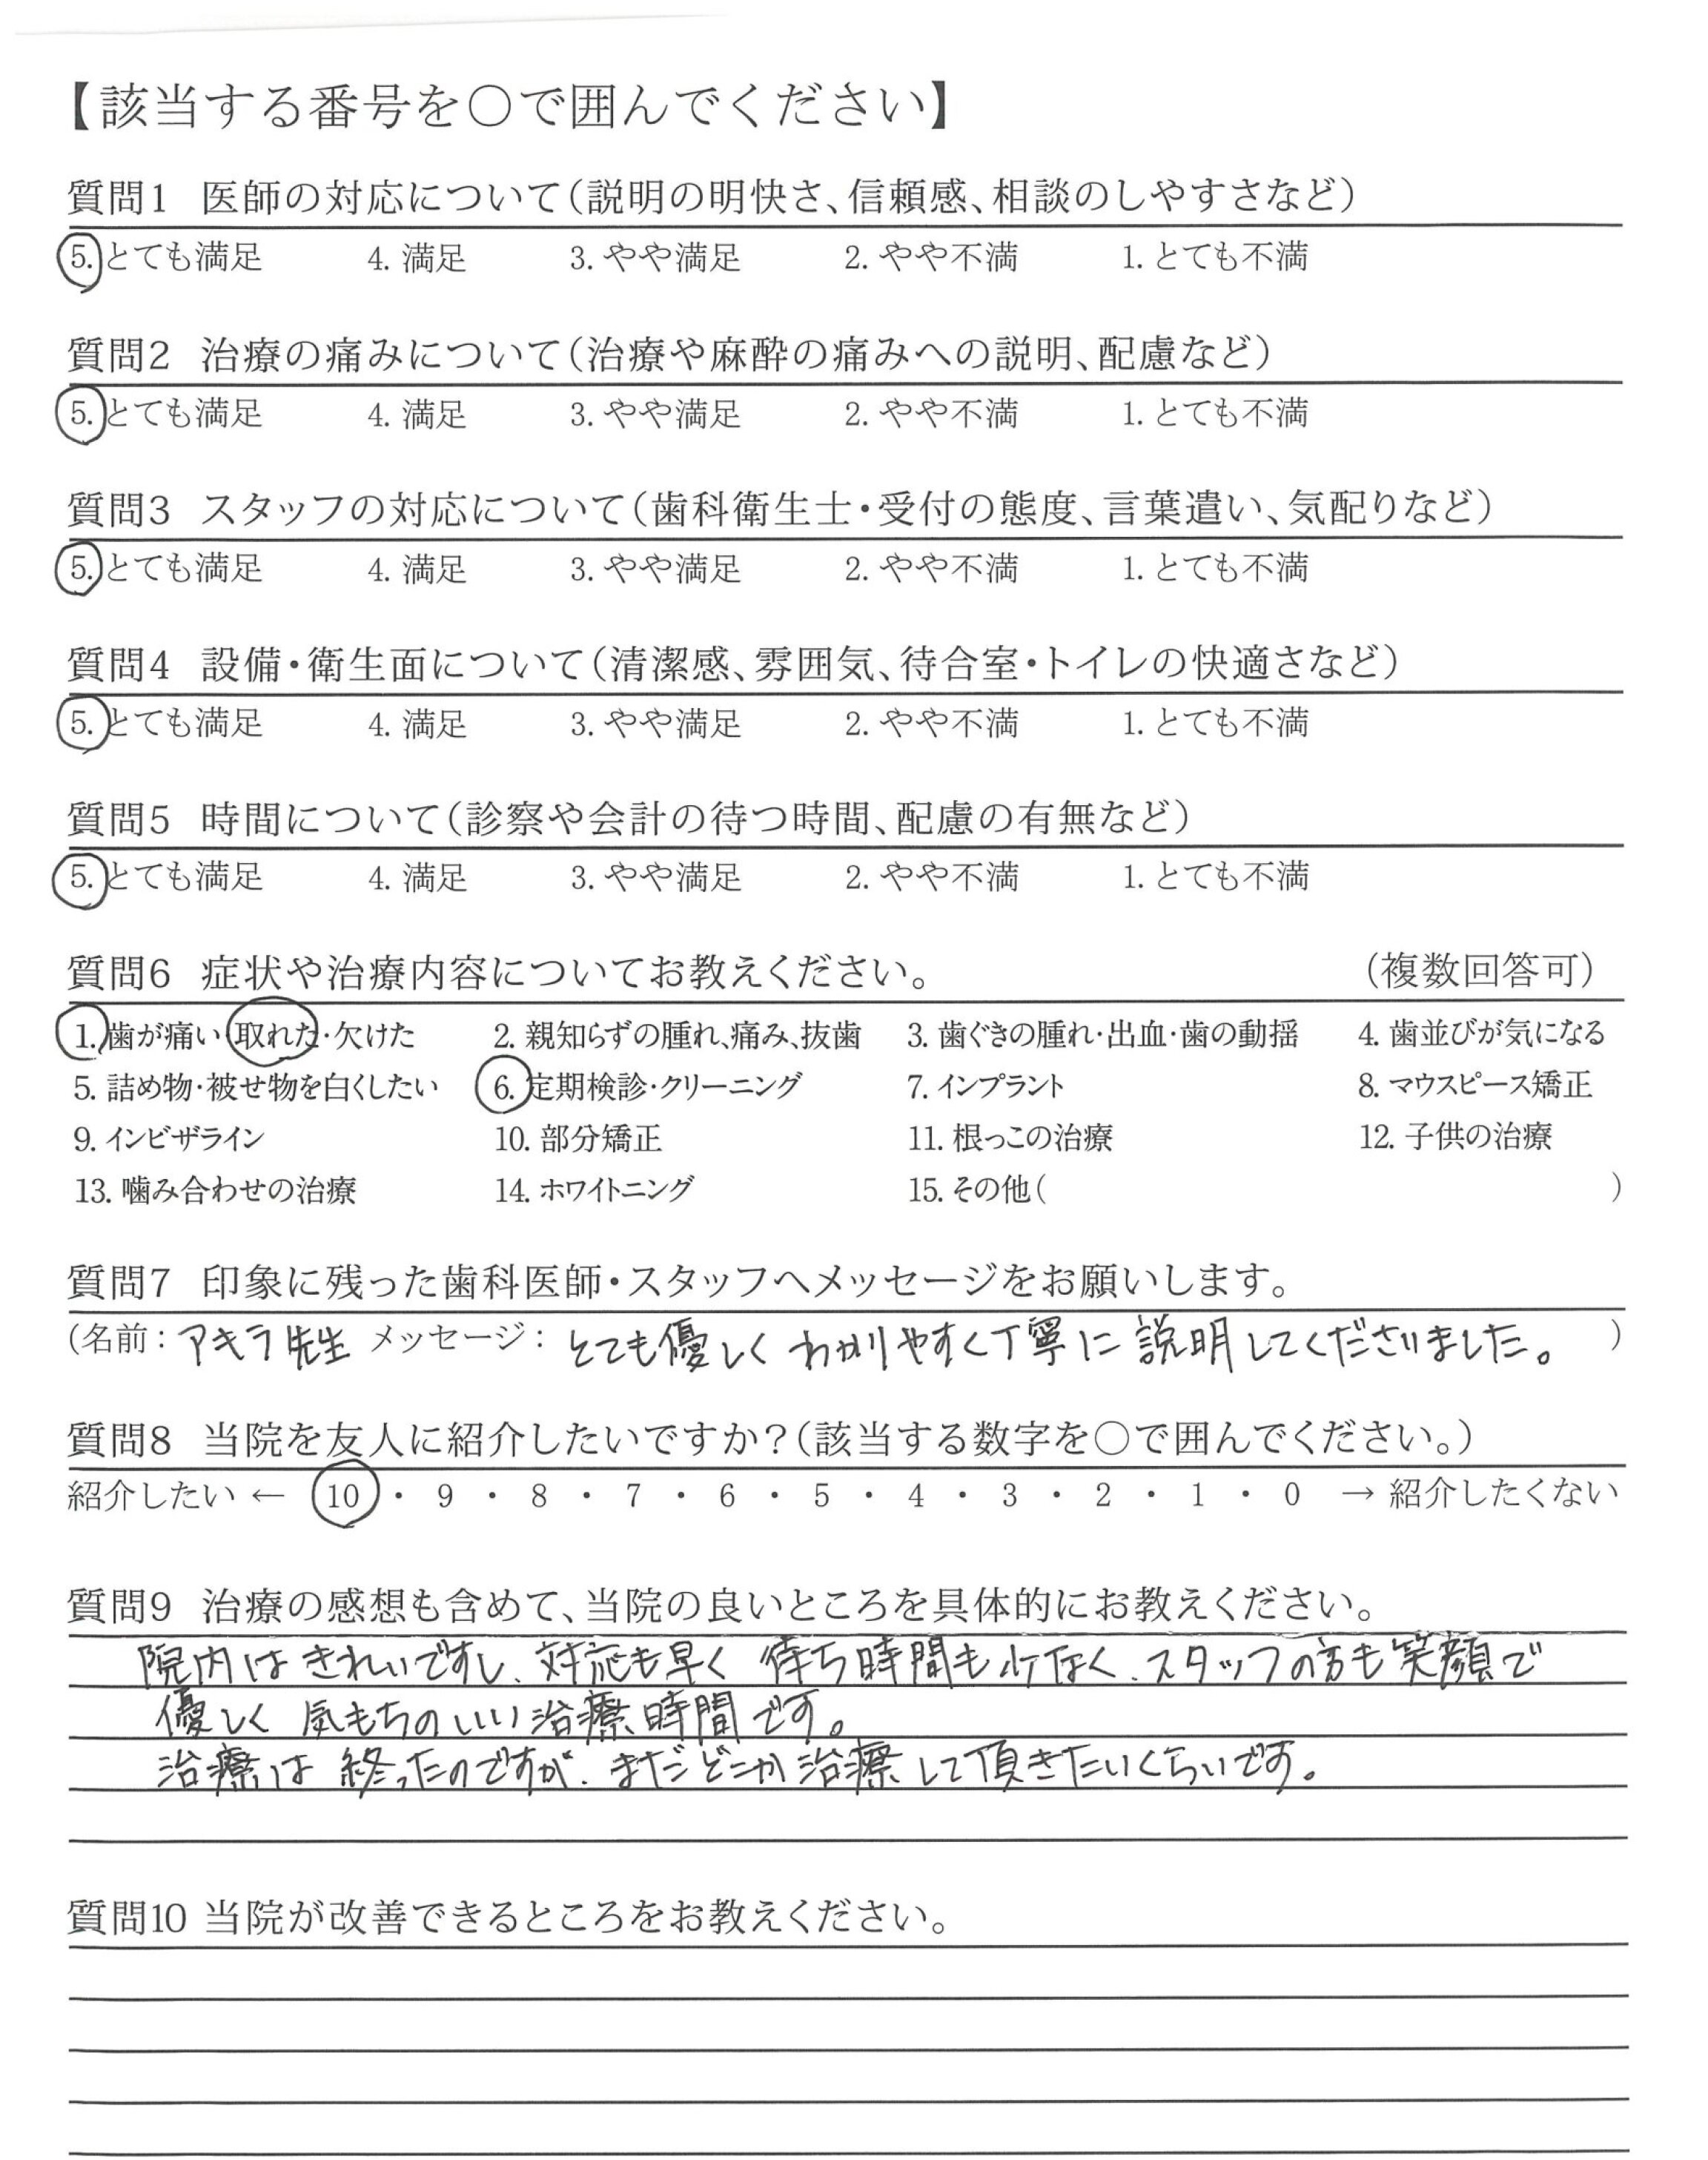 【該当する番号を○で囲んでください】
質問1 医師の対応について(説明の明快さ、信頼感、相談のしやすさなど)
5. とても満足 4. 満足 3. やや満足 2. やや不満 1. とても不満
質問2 治療の痛みについて(治療や麻酔の痛みへの説明、配慮など)
5. とても満足 4. 満足 3. やや満足 2. やや不満 1. とても不満
質問3 スタッフの対応について(歯科衛生士・受付の態度、言葉遣い、気配りなど)
5. とても満足 4. 満足 3. やや満足 2. やや不満 1. とても不満
質問4 設備・衛生面について(清潔感、雰囲気、待合室・トイレの快適さなど)
5. とても満足 4. 満足 3. やや満足 2. やや不満 1. とても不満
質問5 時間について(診察や会計の待つ時間、配慮の有無など)
5. とても満足 4. 満足 3. やや満足 2. やや不満 1. とても不満
質問6 症状や治療内容についてお教えください。 (複数回答可)
1. 歯が痛い・取れた・欠けた 2. 親知らずの腫れ、痛み、抜歯 3. 歯ぐきの腫れ・出血・歯の動揺 4. 歯並びが気になる
5. 詰め物・被せ物を白くしたい 6. 定期検診・クリーニング 7. インプラント 8. マウスピース矯正
9. インビザライン 10. 部分矯正 11. 根っこの治療 12. 子供の治療
13. 噛み合わせの治療 14. ホワイトニング 15. その他( )
質問7 印象に残った歯科医師・スタッフへメッセージをお願いします。
(名前: アキラ先生 メッセージ: とても優しくわかりやすく丁寧に説明してくださいました。 )
質問8 当院を友人に紹介したいですか?(該当する数字を○で囲んでください。)
紹介したい ← 10 ・ 9 ・ 8 ・ 7 ・ 6 ・ 5 ・ 4 ・ 3 ・ 2 ・ 1 ・ 0 → 紹介したくない
質問9 治療の感想も含めて、当院の良いところを具体的にお教えください。
院内はきれいですし、対応も早く 待ち時間も少なく、スタッフの方も笑顔で
優しく 気もちのいい治療時間です。
治療は終ったのですが、まだどこか治療して頂きたいくらいです。
質問10 当院が改善できるところをお教えください。